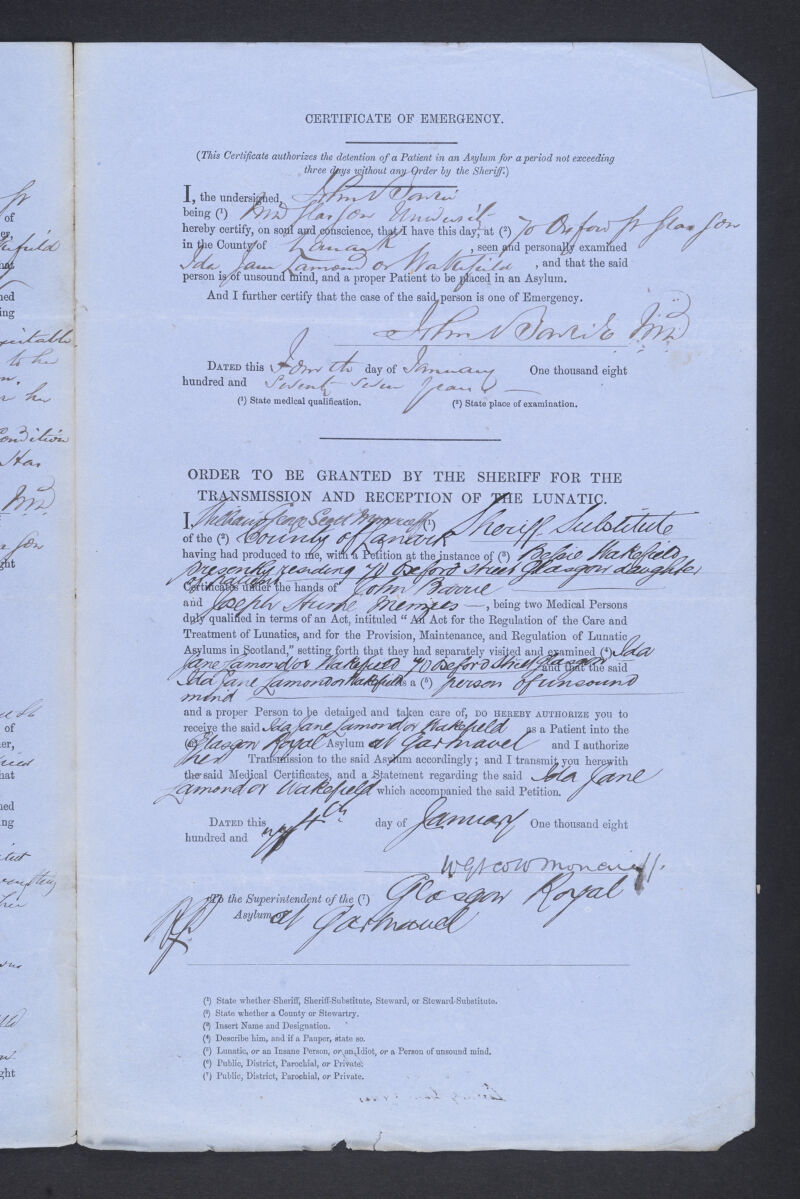 CERTIFICATE OF EMERGENCY.
(This Certificate authorizes the detention of a Patient in an Asylum for a period not exceeding
three days without any Order by the Sheriff.)
I, the undersigned, John
being (¹) MD Glasgow
hereby certify, on soul and conscience, that I have this day, at (²) 70 Oxford St Glasgow
in the County of Lanark , seen and personally examined
Ida Jane Lamond or Wakefield , and that the said
person is of unsound mind, and a proper Patient to be placed in an Asylum.
And I further certify that the case of the said person is one of Emergency.
John MD
DATED this Fourth day of January One thousand eight
hundred and Seventy Seven years
(¹) State medical qualification. (²) State place of examination.
ORDER TO BE GRANTED BY THE SHERIFF FOR THE
TRANSMISSION AND RECEPTION OF THE LUNATIC.
I, William George Scott Moncrieff (¹) Sheriff Substitute
of the (²) County of Lanark
having had produced to me, with a Petition at the instance of (³) Bessie Wakefield
presently residing 70 Oxford Street Glasgow daughter
of Patient
Certificates under the hands of John
and Joseph Hume Menzies , being two Medical Persons
duly qualified in terms of an Act, intituled "An Act for the Regulation of the Care and
Treatment of Lunatics, and for the Provision, Maintenance, and Regulation of Lunatic
Asylums in Scotland," setting forth that they had separately visited and examined (⁴) Ida
Jane Lamond or Wakefield 70 Oxford Street Glasgow and that the said
Ida Jane Lamond or Wakefield is a (⁵) person of unsound
mind
and a proper Person to be detained and taken care of, DO HEREBY AUTHORIZE you to
receive the said Ida Jane Lamond or Wakefield as a Patient into the
(⁶) Glasgow Royal Asylum at Gartnavel and I authorize
her Transmission to the said Asylum accordingly; and I transmit you herewith
the said Medical Certificates, and a Statement regarding the said Ida Jane
Lamond or Wakefield which accompanied the said Petition.
DATED this day of January One thousand eight
hundred and
W G Scott Moncrieff.
To the Superintendent of the (⁷) Glasgow Royal
Asylum at Gartnavel
(¹) State whether Sheriff, Sheriff-Substitute, Steward, or Steward-Substitute.
(²) State whether a County or Stewartry.
(³) Insert Name and Designation.
(⁴) Describe him, and if a Pauper, state so.
(⁵) Lunatic, or an Insane Person, or an Idiot, or a Person of unsound mind.
(⁶) Public, District, Parochial, or Private.
(⁷) Public, District, Parochial, or Private.